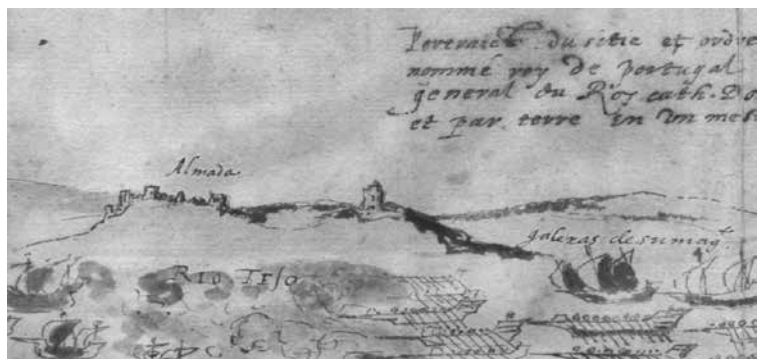 du sitie et ordre
nommé roy de portugal
general du Roy cath. Do
et par terre in un mes
Almada
galeras de su mag.t
RIO TEJO